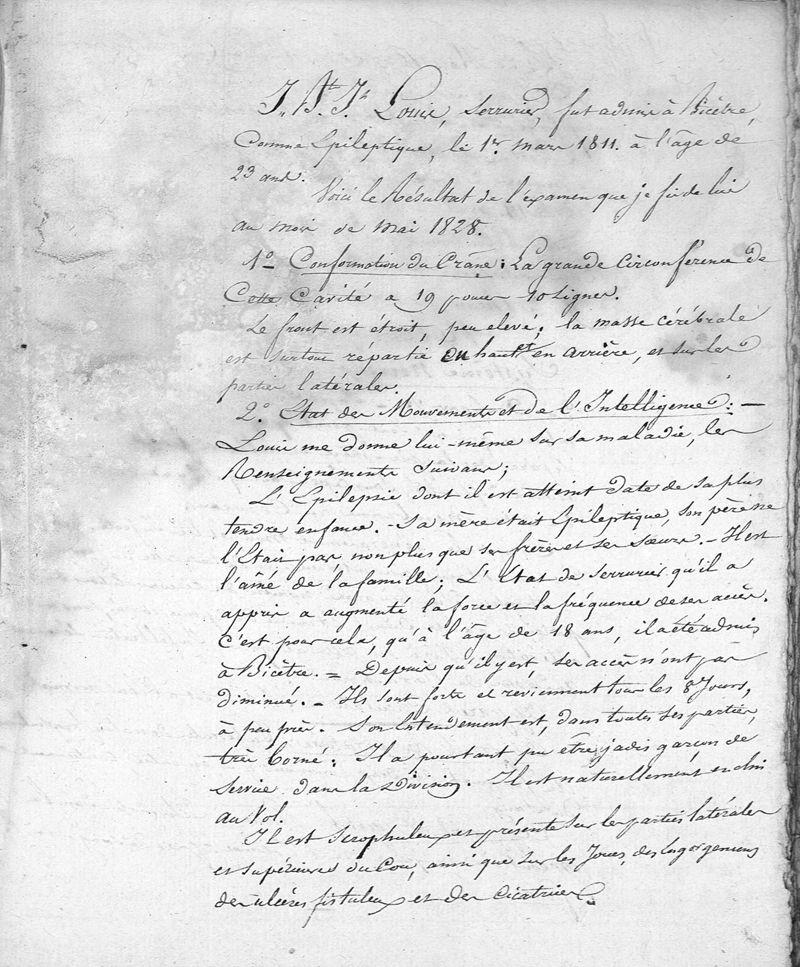 J. Bte. Jh. Louis, Serrurier, fut admis à Bicêtre,
Comme Epileptique, le 1er. mars 1811. à l'âge de
23 ans.
Voici le Résultat de l'examen que je fis de lui
au mois de Mai 1828.
1o- Conformation du Crâne : La grande Circonférence de
Cette Cavité a 19 pouces 10 Lignes.
Le front est étroit, peu elevé ; la masse cérébrale
est surtout répartie en hautt. en arrière, et sur les
parties latérales.
2.o Etat des Mouvements et de l'Intelligence : -
Louis me donne lui-même sur sa maladie, les
Renseignements suivans ;
L'Epilepsie dont il est atteint date de sa plus
tendre enfance. - Sa mère était Epileptique, son père ne
l'Etait pas non plus que ses frères et ses Sœurs. - Il est
l'aîné de la famille ; L'Etat de serrurier qu'il a
appris a augmenté la force et la fréquence de ses accès.
C'est pour cela, qu'à l'âge de 18 ans, il a été admis
à Bicêtre. = Depuis qu'il y est, ses accès n'ont pas
diminué. - Ils sont forts et reviennent tous les 8 Jours,
à peu près. Son Entendement est, dans toutes ses parties,
très borné ; Il a pourtant pu être jadis garçon de
Service dans la Division. Il est naturellement enclin
au Vol.
Il est Scrophuleux et présente sur les parties latérales
et supérieures du Cou, ainsi que sur les Joues, des Engorgemens
des ulcères fistuleux et des Cicatrices.